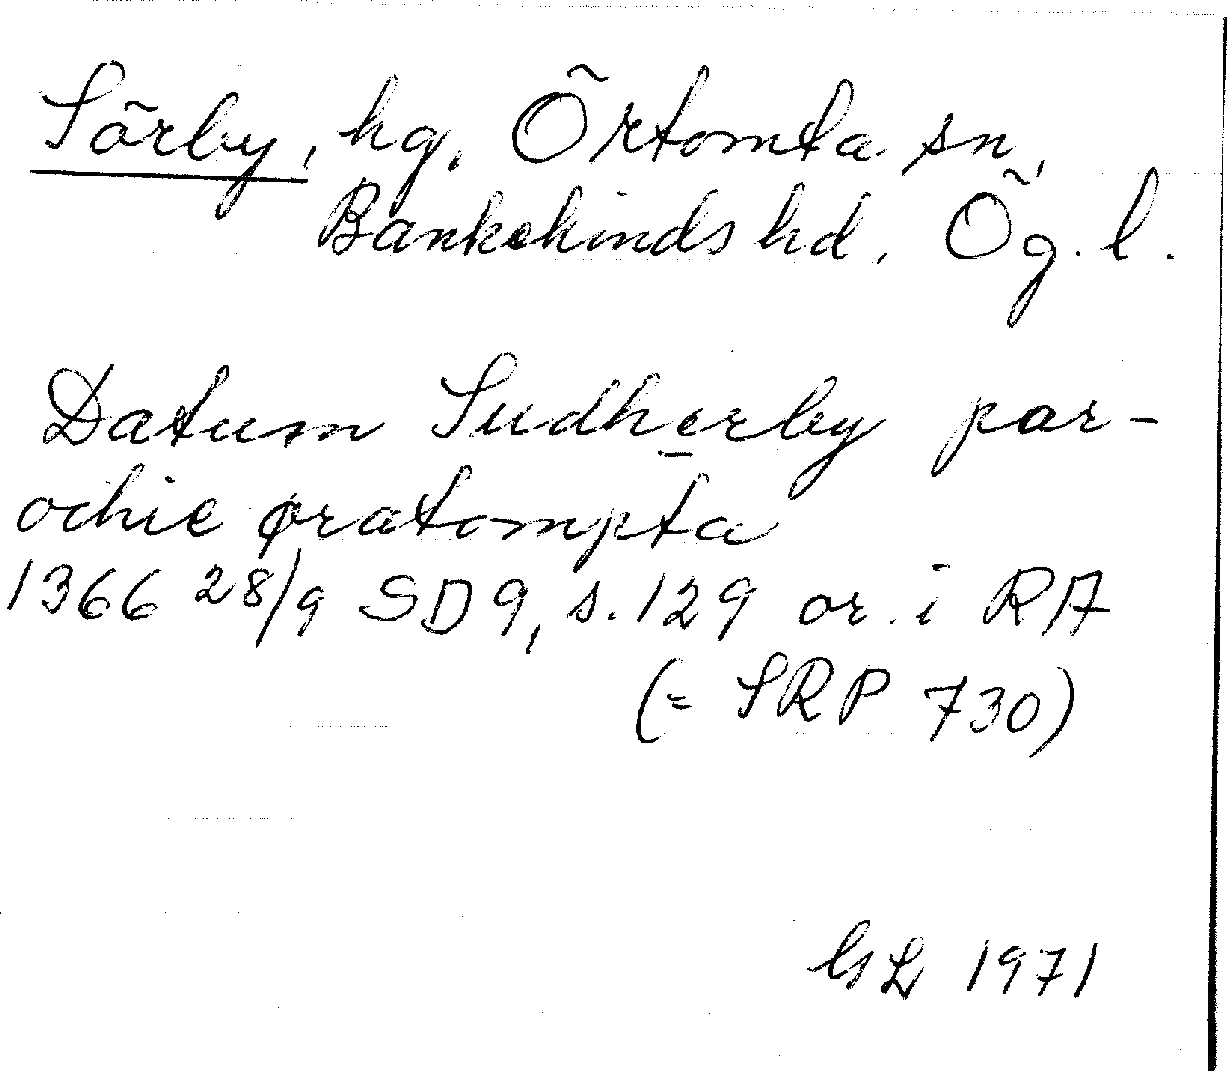 Sörby, hg, Örtomta sn,
Bankekinds hd, Ög. l.
Datum Sudherby par-
ochie øratompta
1366 28/9 SD 9, s. 129 or. i RA
(= SRP 730)
GL 1971